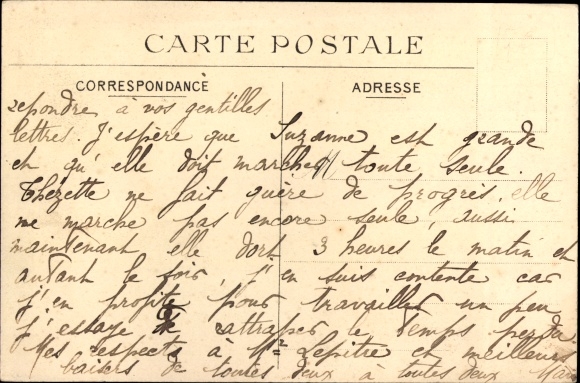 CARTE POSTALE
CORRESPONDANCE
ADRESSE
repondre à vos gentilles
lettres. J'espère que Suzanne est grande
et qu'elle doit marcher toute seule.
Thezette ne fait guère de progrès, elle
ne marche pas encore seule, aussi
maintenant elle dort 3 heures le matin et
autant le soir, j'en suis contente car
j'en profite pour travailler un peu
j'essaye de rattraper le temps perdu
Mes respects à Mme Lepitre et meilleurs
baisers de toutes deux à toutes deux